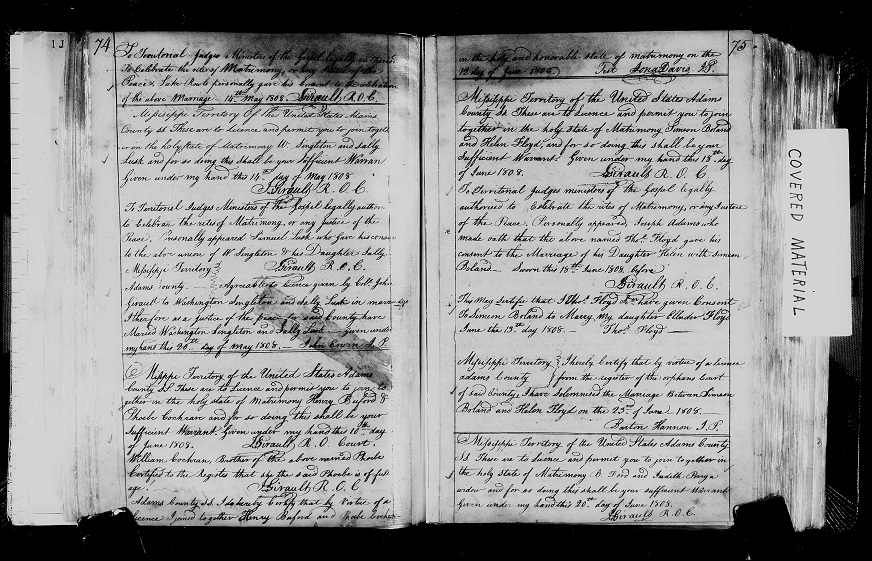 74
To Territorial Judges Ministers of the Gospel legally authoris
To Celebrate the rites of Matrimony, or any Justice of the
Peace Luke Rouls personally gave his Consent to the celebration
of the above Marriage 14th May 1808. JGirault, R.O.C.
Mississippi Territory of the United States Adams
County SS These are to Licence and permit you to join togeth
er in the holy state of Matrimony W. Singleton and Sally
Lusk and for so doing this shall be your Sufficient Warran
Given under my hand this 14th day of May 1808
JGirault, R.O.C.
To Territorial Judges Ministers of the Gospel legally author
to Celebrate the rites of Matrimony, or any Justice of the
Peace. Personally appeared Samuel Lusk who Gave his consen
to the above union of W. Singleton & his Daughter Sally.
Mississippi Territory JGirault, R.O.C.
Adams County. Agreeable to licence given by Colo. John
Girault to Washington Singleton and Sally Lusk in marriage
I therefore as a Justice of the peace for said County have
Married Washington Singleton and Sally Lusk Given under
my hand this 26th day of May 1808. John Erwin J.P.
Missippi Territory of the United States Adams
County SS These are to Licence and permit you to join to
gether in the holy state of Matrimony Henry Buford &
Phoebe Cochran and for so doing this shall be your
Sufficient Warrant Given under my hand this 16th day
of June 1808. JGirault, R.O. Court.
William Cochran, Brother of the above named Phoebe
Certified to the Register that she the said Phoebe is of full
age. JGirault, R.O.C
Adams County SS. I do hereby Certify that by Virtue of a
Licence I joined together Henry Buford and Phoebe Cochr
75
in the holy and honorable state of matrimony on the
19 day of June 1808. Test Jona Davis JP.
Mississippi Territory of the United States Adams
County SS These are to Licence and permit you to join
together in the holy State of Matrimony Simeon Boland
and Helen Floyd, and for so doing this shall be your
Sufficient Warrant. Given under my hand this 18th day
of June 1808. JGirault R.O.C.
To Territorial Judges ministers of the Gospel legally
authorised to Celebrate the rites of Matrimony, or any Justice
of the Peace. Personally appeared, Joseph Adams who
made oath that the above named Thos. Floyd gave his
consent to the Marriage of his Daughter Helen with Simeon
Boland Sworn this 18th June 1808. before
JGirault, R.O.C.
This May Certify that I Thos. Floyd have given Consent
To Simeon Boland to Marry my daughter Elledor Floyd
June the 13th day 1808. Thos. Floyd
Mississippi Territory I hereby Certify that by virtue of a licence
adams County from the register of the orphans Court
of said County, I have Solemnised the Marriage Between Simeon
Boland and Helen Floyd on the 23d of June 1808.
Barton Hannon J.P.
Mississippi Territory of the United States Adams County
SS These are to Licence and permit you to join together in
the holy State of Matrimony B. Ford and Judith
and for so doing this shall be your sufficient Warrant
Given under my hand this 20th day of June 1808.
JGirault R.O.C.
COVERED MATERIAL